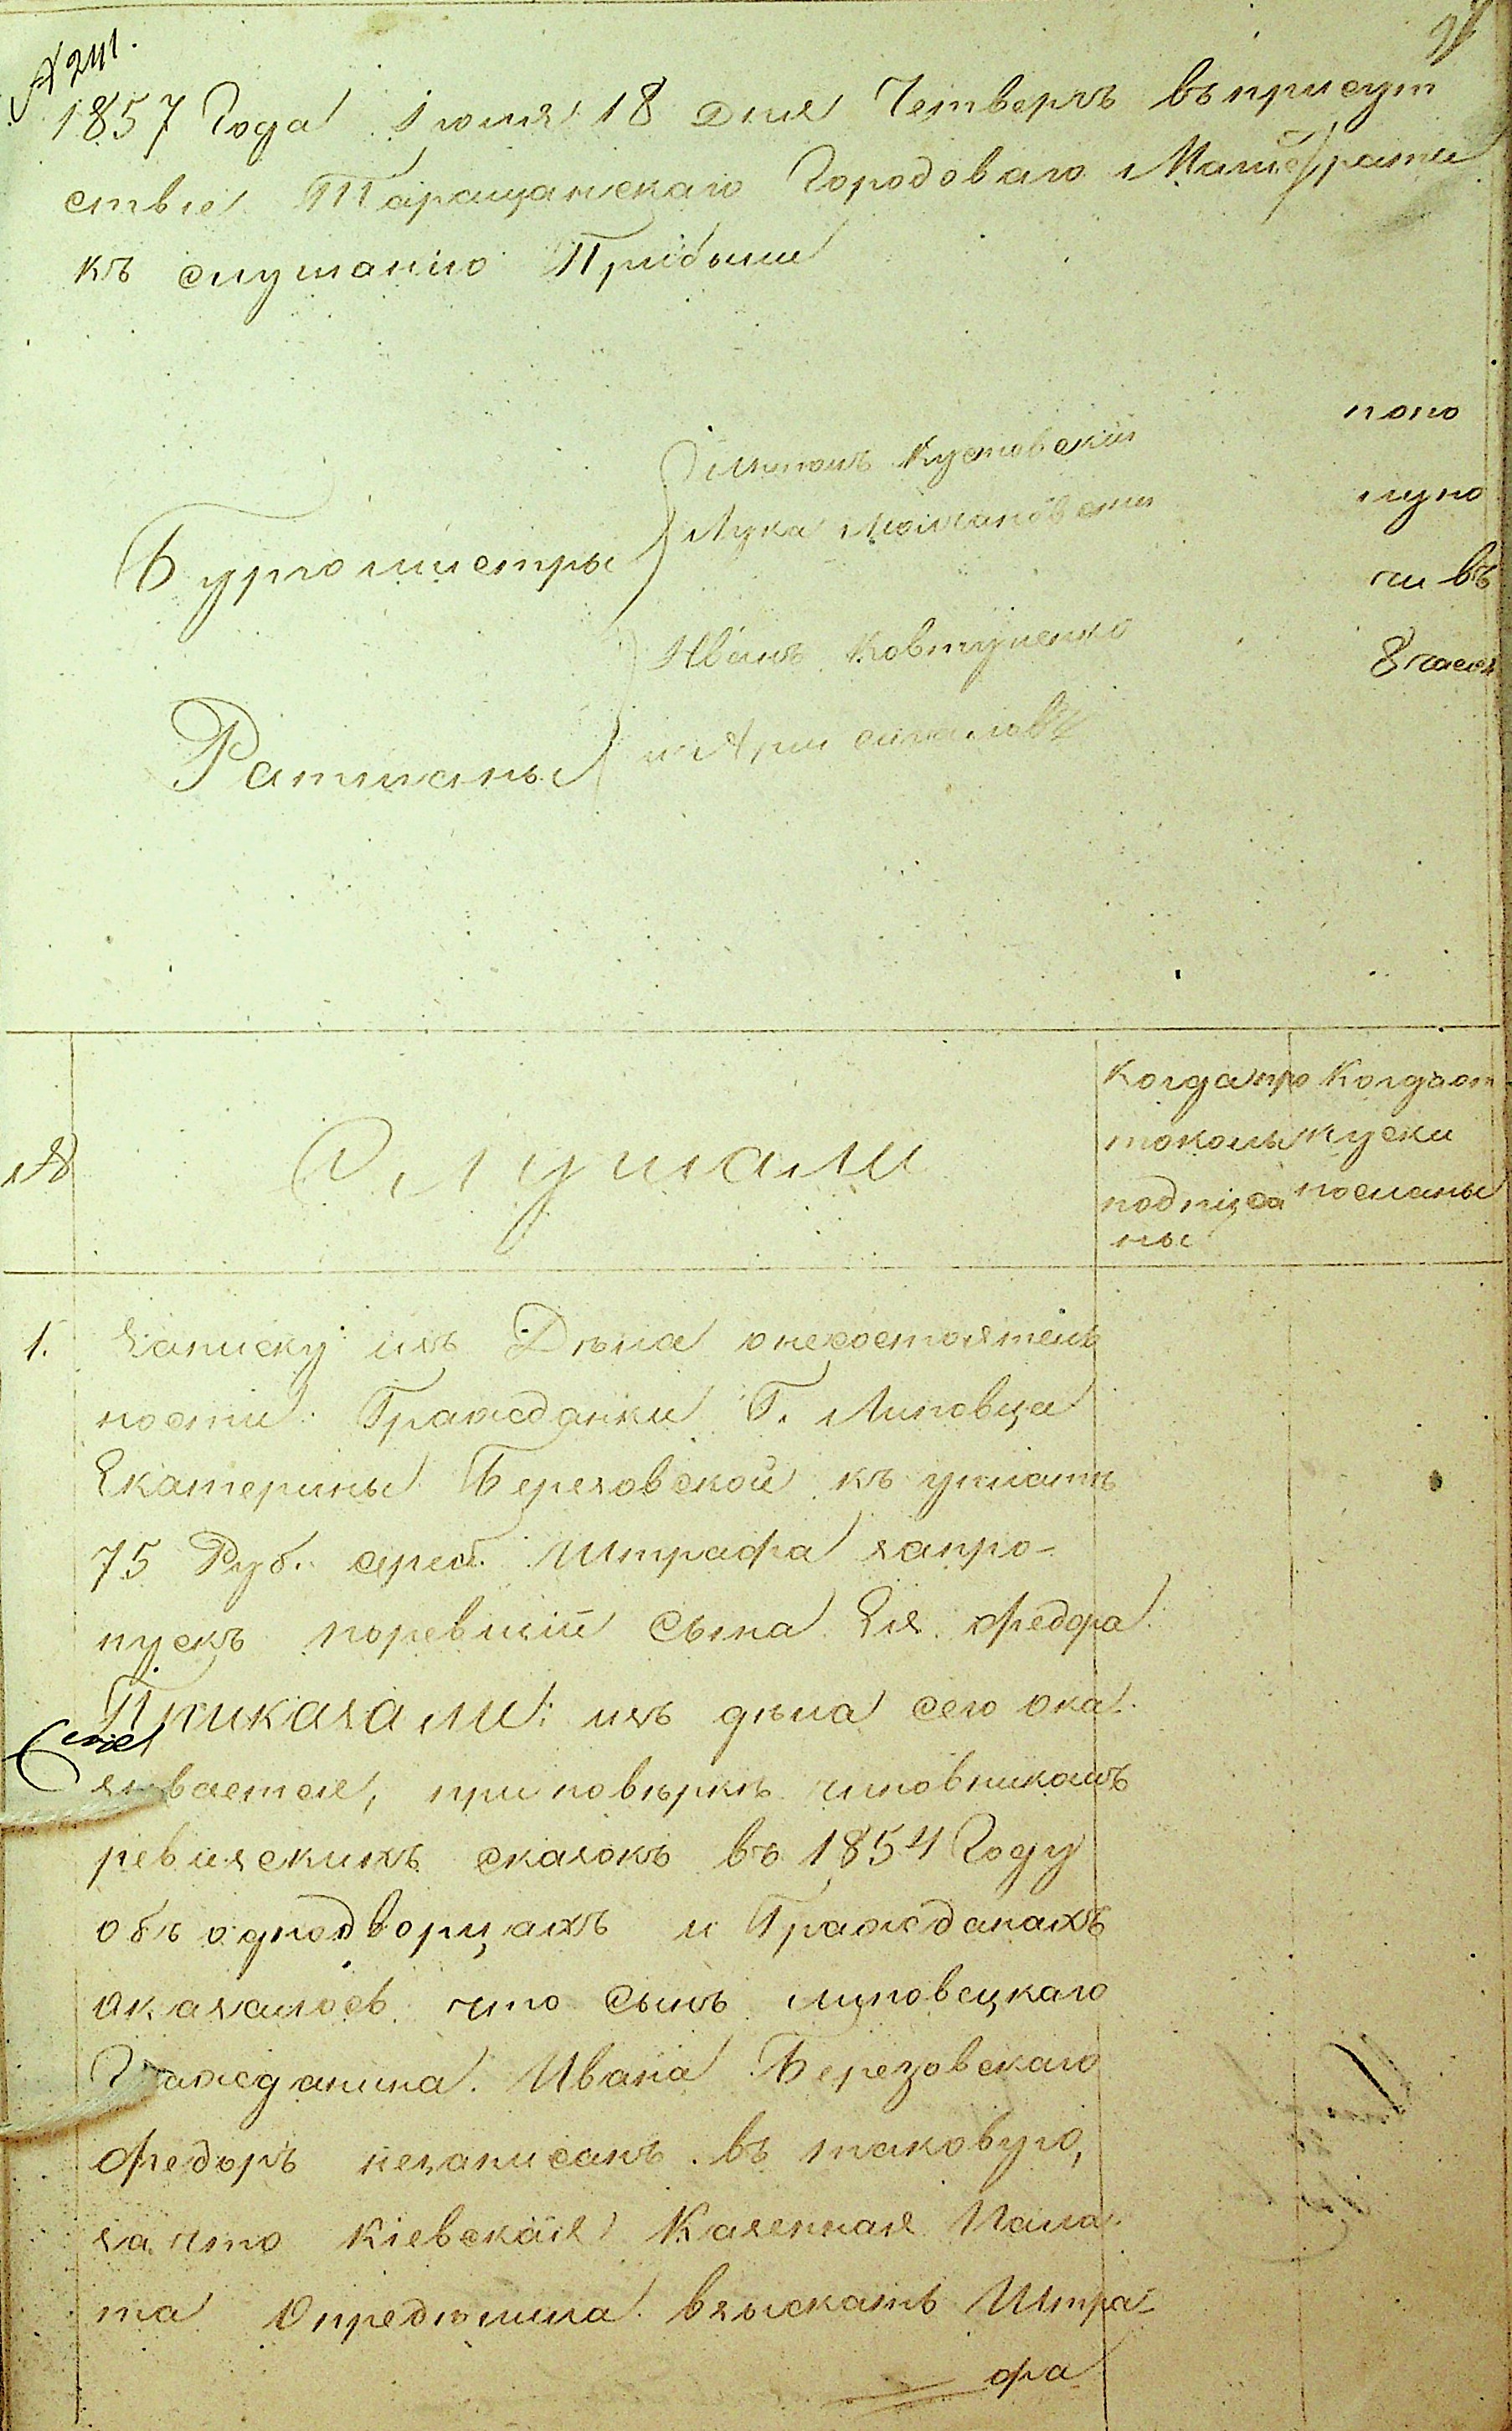 № 241.
1857 Года Iюля 18 дня Четвергъ въ присут
ствiе Таращанскаго Городоваго Магистрата
къ слушанiю Прибыли
Бургомистры
Кустовскiй
Лука
Ратманы
Иванъ Ковтуненко
и
попо
лудно
чи въ
8 часов
№
Слушали
Когда про
токолы
подписа
ны
Когда от
пуски
посланы
1. Записку изъ Дѣла о несостоятель
ности Гражданки Г. Липовца
Екатерины Березовской къ уплатѣ
75 Руб. сереб. Штрафа запро-
пускъ поревизiи Сына Ея Федора
Приказали: изъ дѣла сего ока
зывается, при повѣркѣ чиновникомъ
ревизскихъ сказокъ въ 1854 Году
объ однодворцахъ и Гражданахъ
оказалось что Сынъ липовецкаго
Гражданина Ивана Березовскаго
Федоръ незаписанъ въ таковую,
за что Кiевская Казенная Пала
та Опредѣлила взыскать Штра-
фа